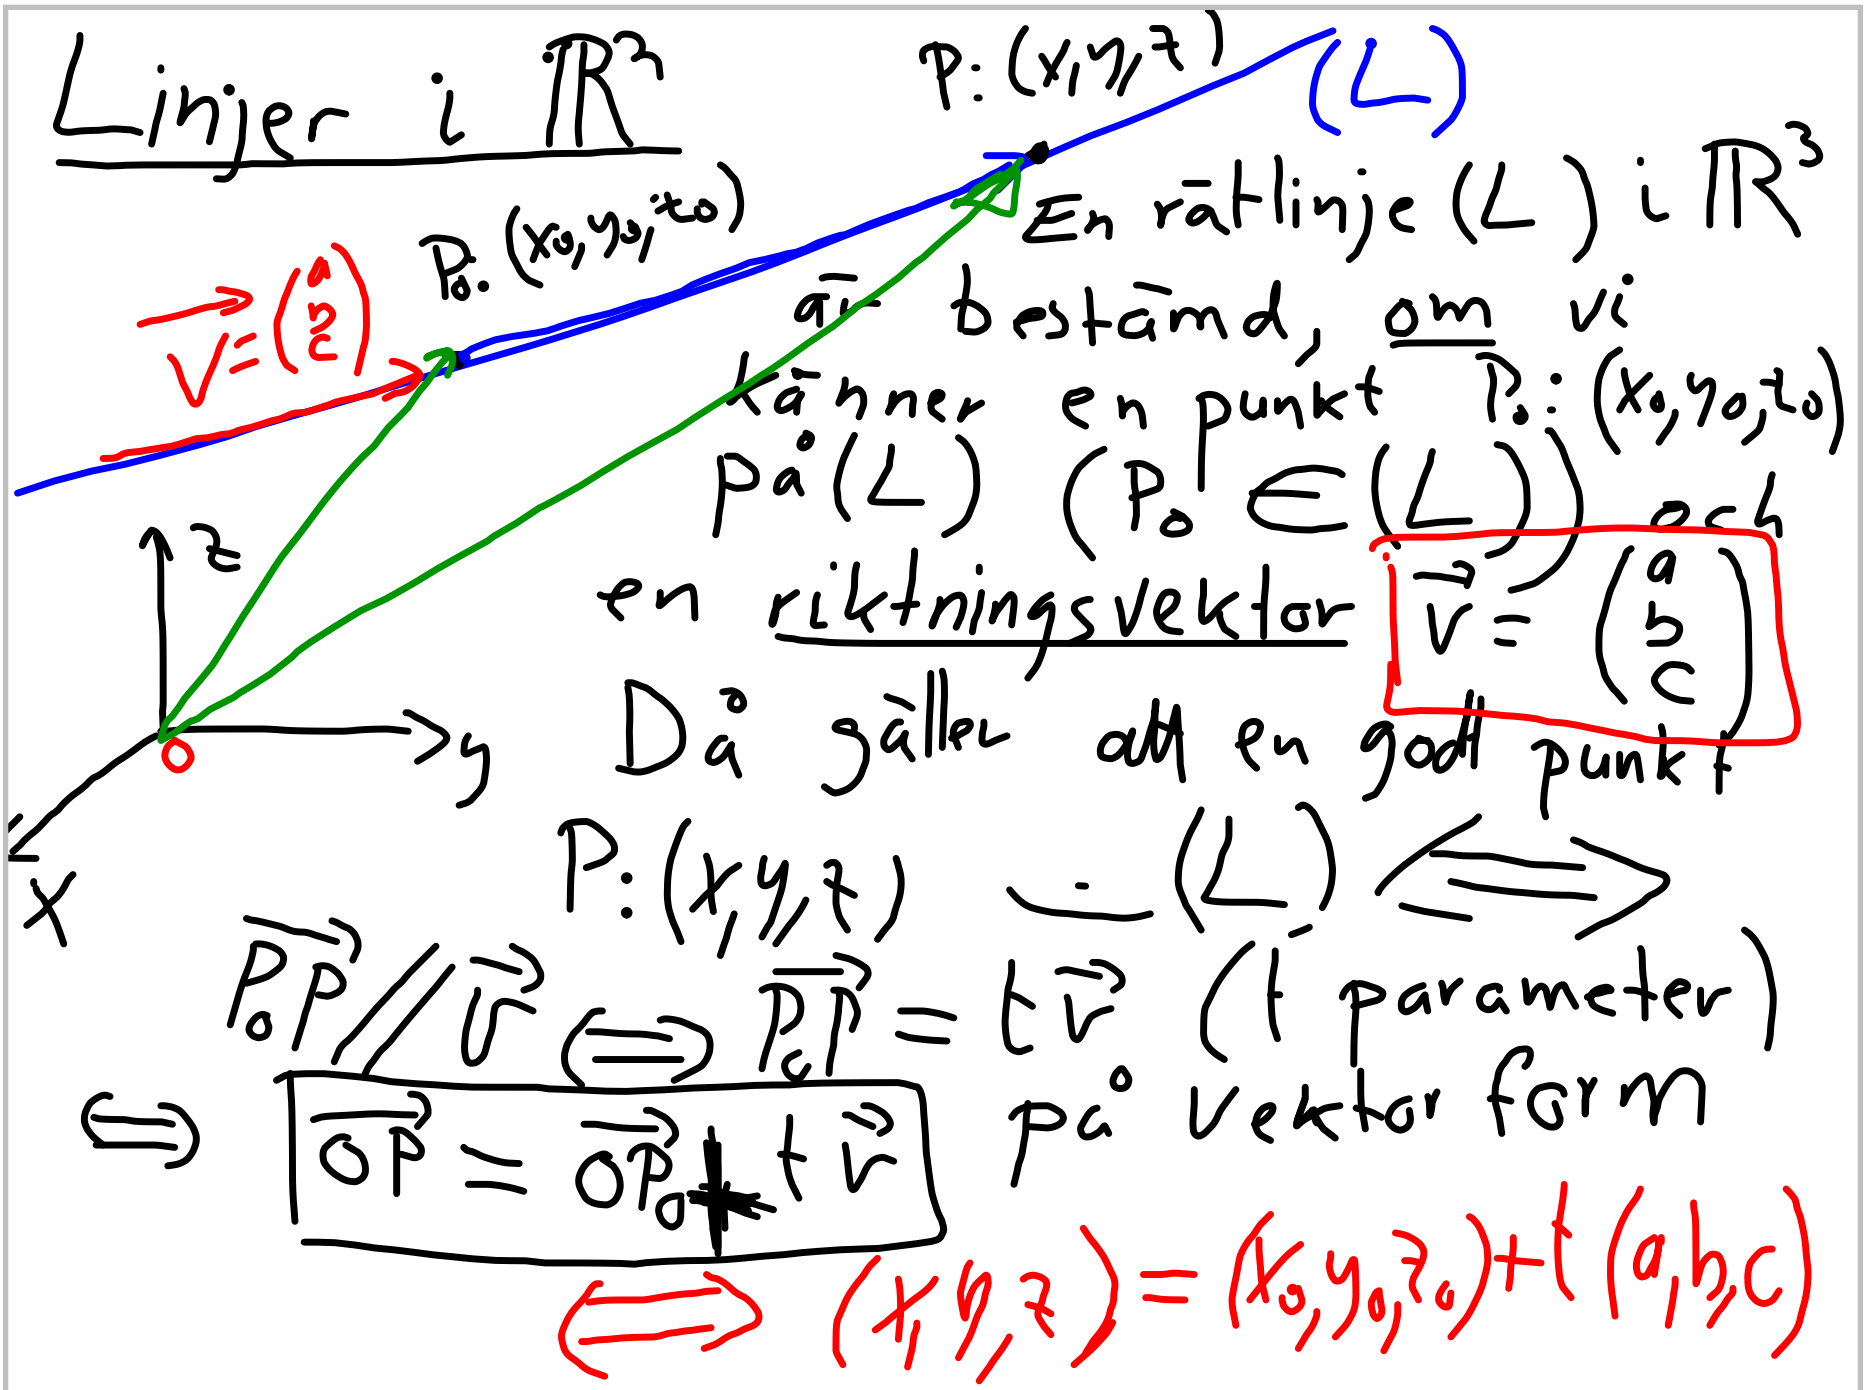 Linjer i ℝ³
P: (x, y, z)
(L)
P₀: (x₀, y₀, z₀)
v⃗ = (a b c)
z
y
x
O
En rät linje (L) i ℝ³
är bestämd, om vi
känner en punkt P₀: (x₀, y₀, z₀)
på (L) (P₀ ∈ (L)) och
en riktningsvektor v⃗ = (a b c)
Då gäller att en godt punkt
P: (x, y, z) i (L) ⟺
P₀P⃗ // v⃗ ⟺ P₀P⃗ = t v⃗ (t parameter)
⟺ OP⃗ = OP₀⃗ + t v⃗ på vektor form
⟺ (x, y, z) = (x₀, y₀, z₀) + t (a, b, c)